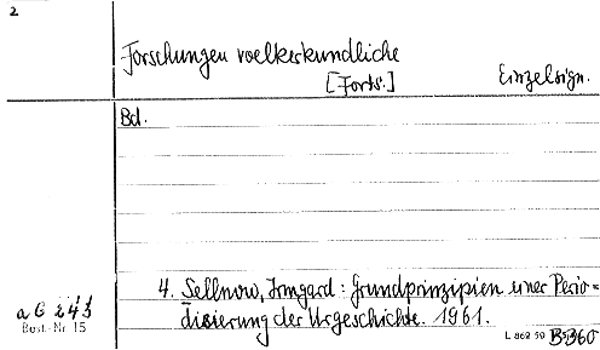 2
Forschungen voelkerkundliche
[Forts.]
Einzelsign.
Bd.
4. Sellnow, Irmgard: Grundprinzipien einer Perio-
disierung der Urgeschichte. 1961.
a G 243
Best.-Nr 15
L 862 50
B 360